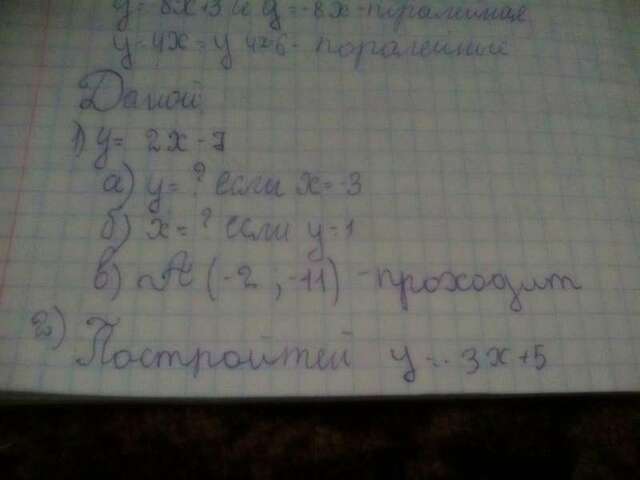 y= 8x+3 и y=-8x-паралельная
y-4x = y 4x6- паралельни
Даной
1) y= 2x-7
а) y= ? если x=-3
б) x= ? если y=1
в) A (-2 ; -11) -проходит
2)
Постройтей y=-3x+5